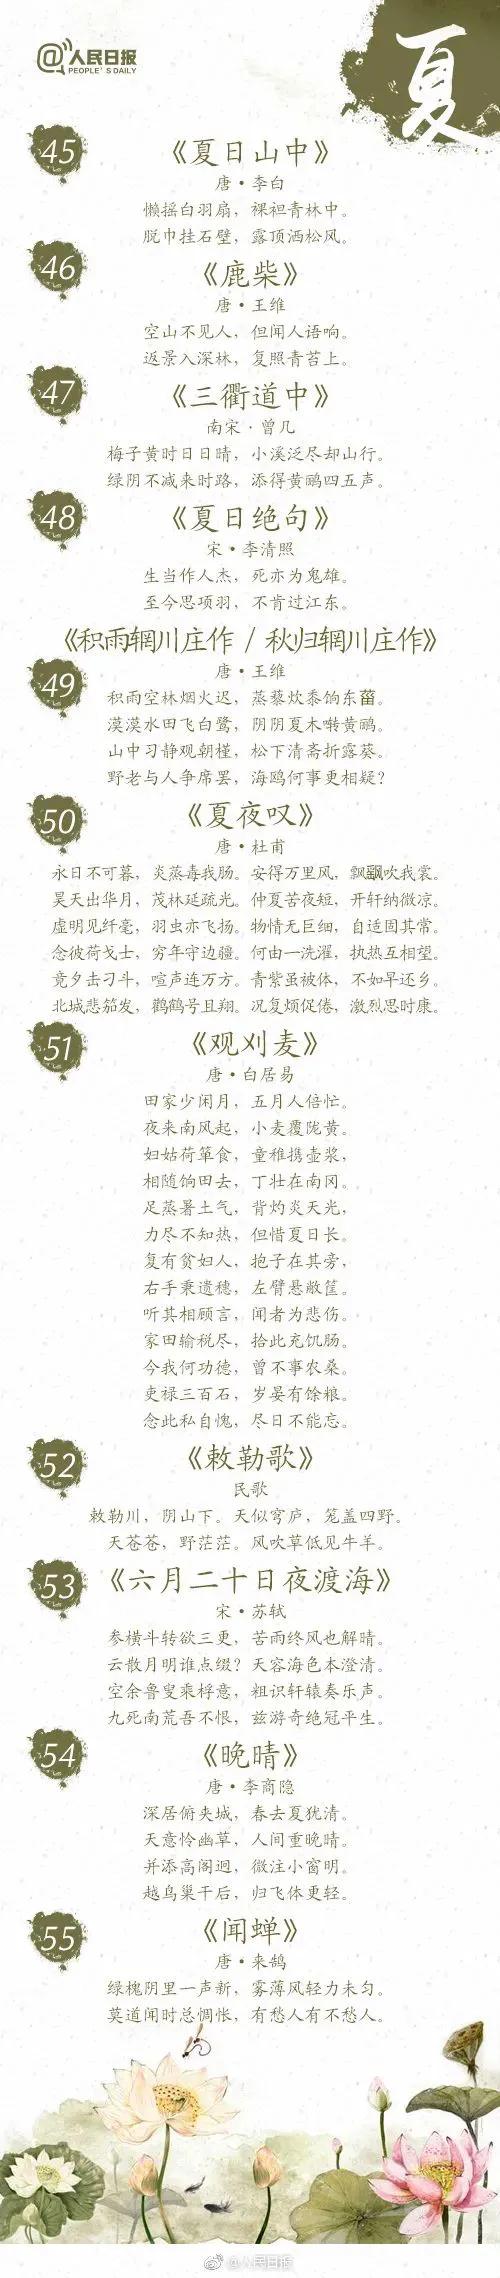 @人民日报
PEOPLE'S DAILY
夏
45
《夏日山中》
唐·李白
懒摇白羽扇，裸袒青林中。
脱巾挂石壁，露顶洒松风。
46
《鹿柴》
唐·王维
空山不见人，但闻人语响。
返景入深林，复照青苔上。
47
《三衢道中》
南宋·曾几
梅子黄时日日晴，小溪泛尽却山行。
绿阴不减来时路，添得黄鹂四五声。
48
《夏日绝句》
宋·李清照
生当作人杰，死亦为鬼雄。
至今思项羽，不肯过江东。
《积雨辋川庄作 / 秋归辋川庄作》
49
唐·王维
积雨空林烟火迟，蒸藜炊黍饷东菑。
漠漠水田飞白鹭，阴阴夏木啭黄鹂。
山中习静观朝槿，松下清斋折露葵。
野老与人争席罢，海鸥何事更相疑？
50
《夏夜叹》
唐·杜甫
永日不可暮，炎蒸毒我肠。安得万里风，飘飖吹我裳。
昊天出华月，茂林延疏光。仲夏苦夜短，开轩纳微凉。
虚明见纤毫，羽虫亦飞扬。物情无巨细，自适固其常。
念彼荷戈士，穷年守边疆。何由一洗濯，执热互相望。
竟夕击刁斗，喧声连万方。青紫虽被体，不如早还乡。
北城悲笳发，鹳鹤号且翔。况复烦促倦，激烈思时康。
51
《观刈麦》
唐·白居易
田家少闲月，五月人倍忙。
夜来南风起，小麦覆陇黄。
妇姑荷箪食，童稚携壶浆，
相随饷田去，丁壮在南冈。
足蒸暑土气，背灼炎天光，
力尽不知热，但惜夏日长。
复有贫妇人，抱子在其旁，
右手秉遗穗，左臂悬敝筐。
听其相顾言，闻者为悲伤。
家田输税尽，拾此充饥肠。
今我何功德，曾不事农桑。
吏禄三百石，岁晏有馀粮。
念此私自愧，尽日不能忘。
52
《敕勒歌》
民歌
敕勒川，阴山下。天似穹庐，笼盖四野。
天苍苍，野茫茫。风吹草低见牛羊。
53
《六月二十日夜渡海》
宋·苏轼
参横斗转欲三更，苦雨终风也解晴。
云散月明谁点缀？天容海色本澄清。
空余鲁叟乘桴意，粗识轩辕奏乐声。
九死南荒吾不恨，兹游奇绝冠平生。
54
《晚晴》
唐·李商隐
深居俯夹城，春去夏犹清。
天意怜幽草，人间重晚晴。
并添高阁迥，微注小窗明。
越鸟巢干后，归飞体更轻。
55
《闻蝉》
唐·来鹄
绿槐阴里一声新，雾薄风轻力未匀。
莫道闻时总惆怅，有愁人有不愁人。
@人民日报